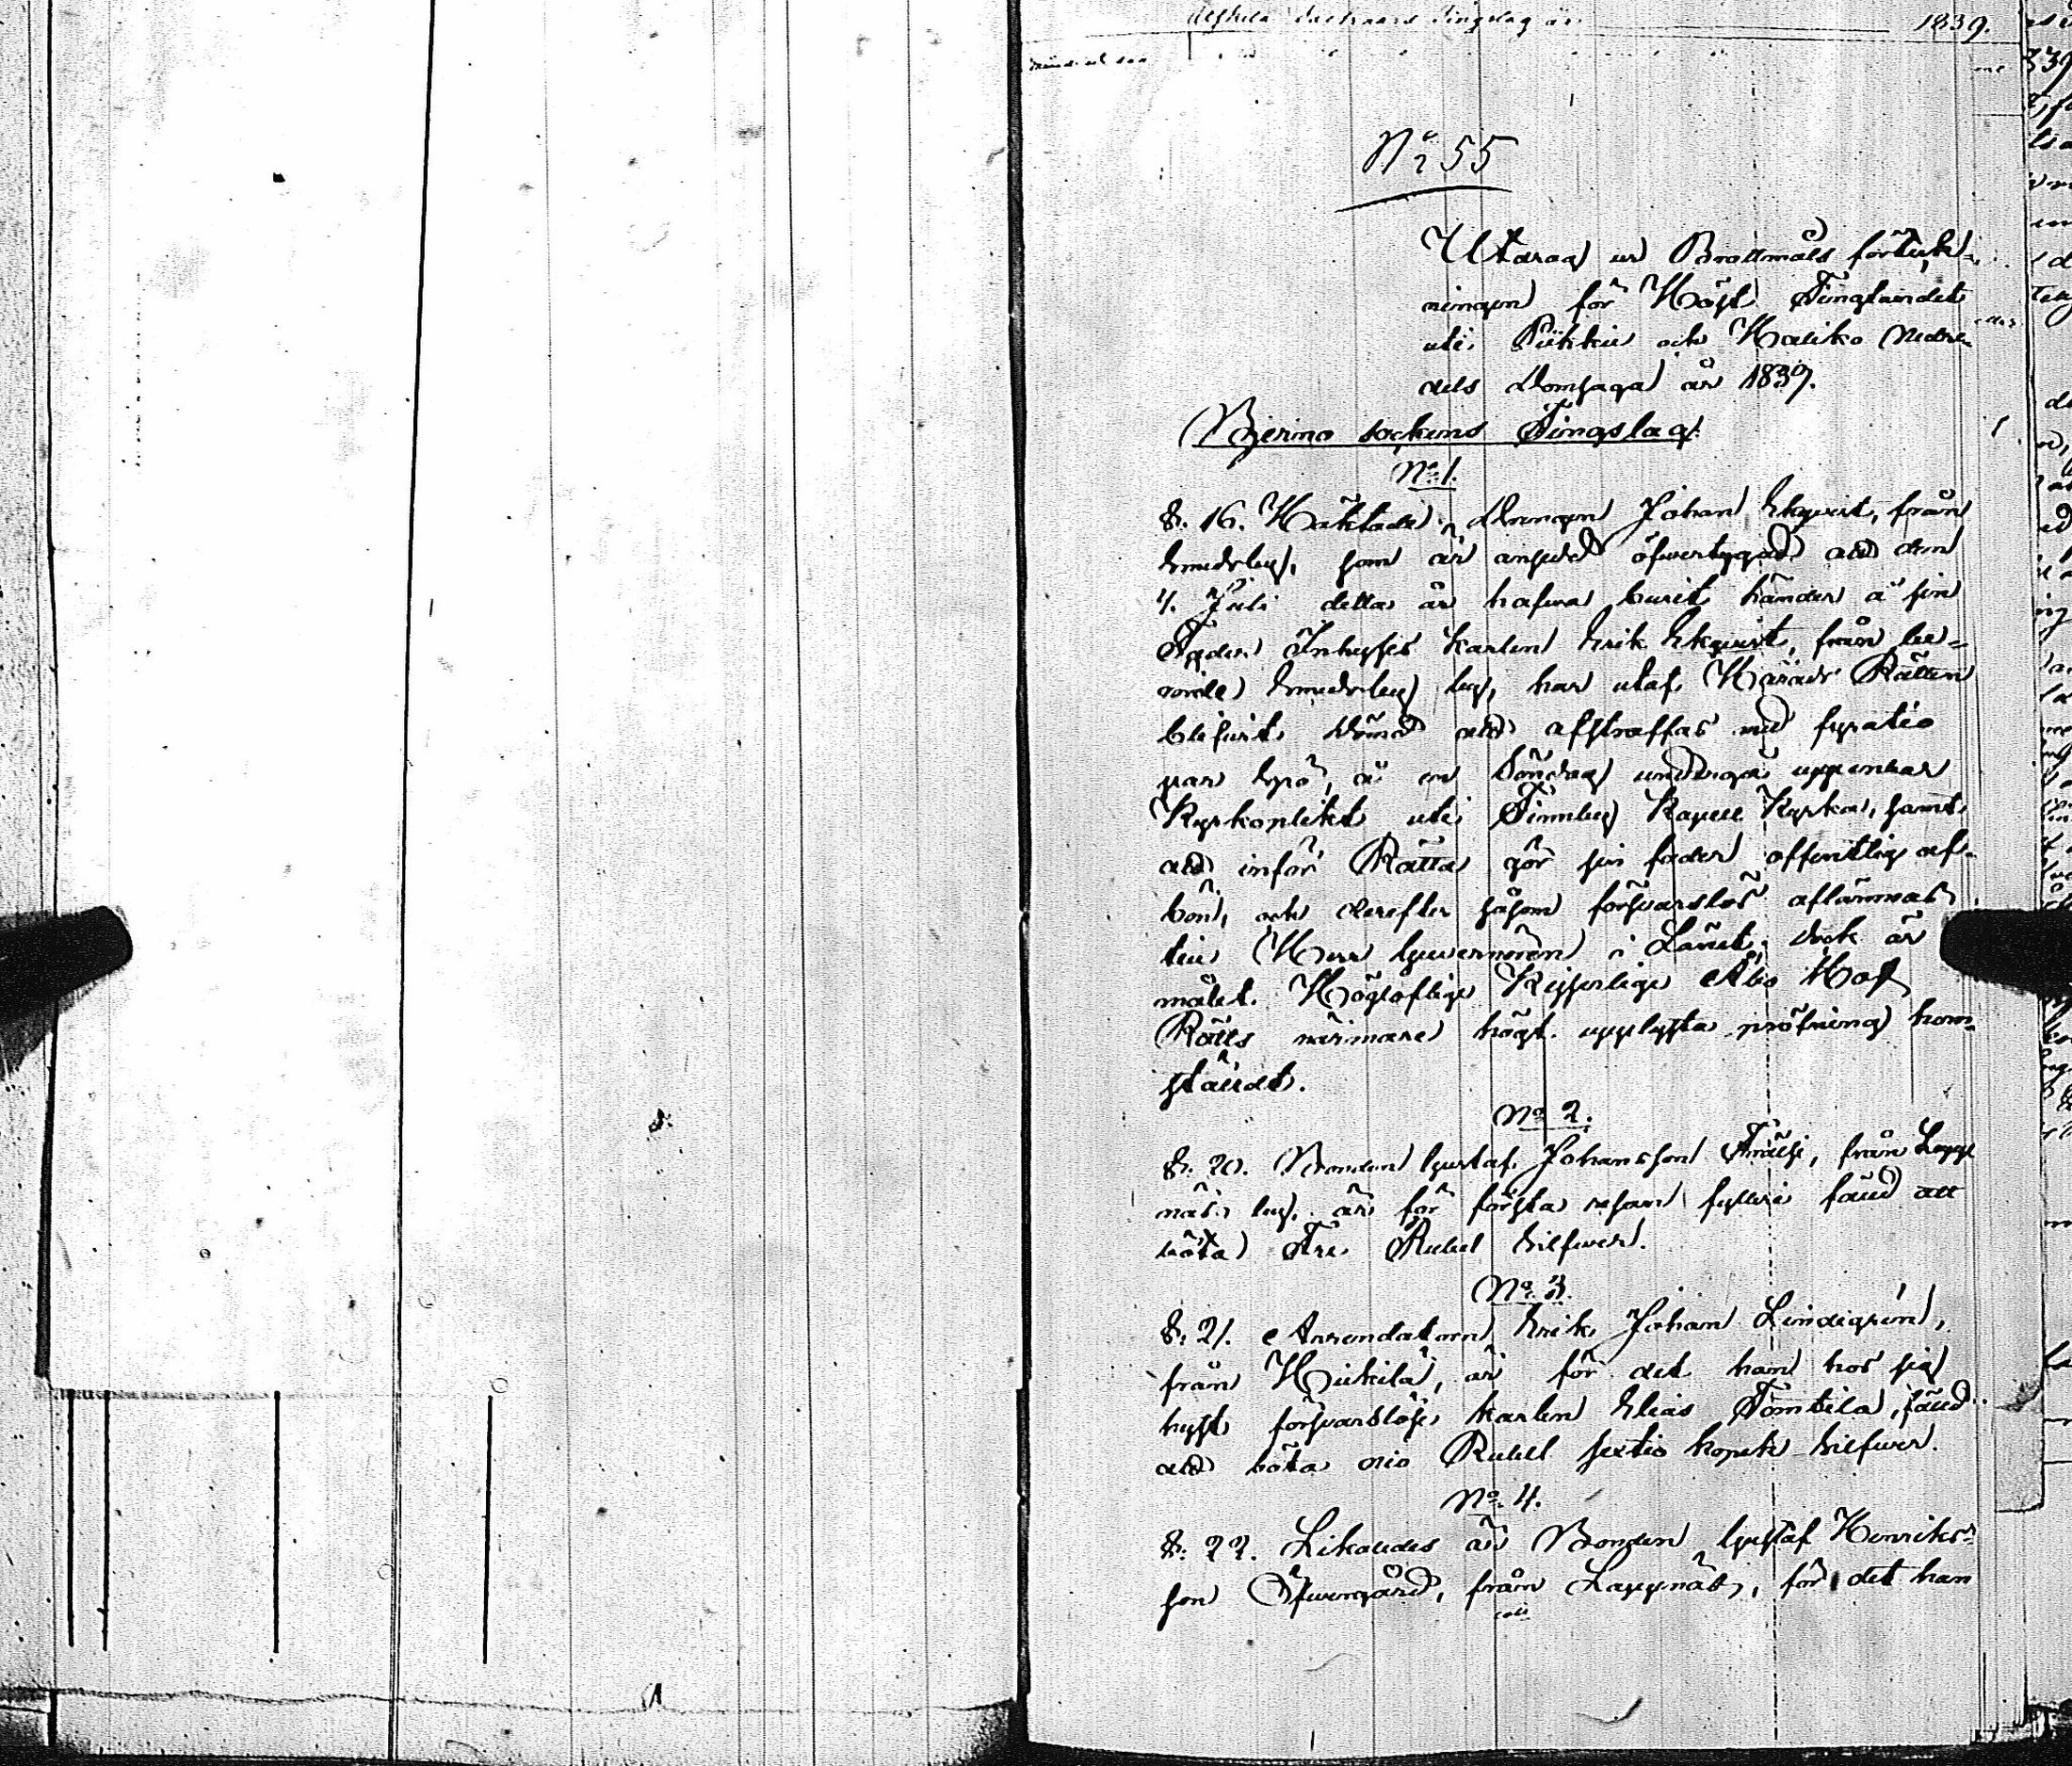 1839.
No 55
Utdrag ur Brottmåls förteck-
ningen för Höst Tingtiderne
uti Pikkie och Haliko Nedre-
dels Domsaga år 1839.
Bjerno sockens Tingslag.
No 1.
§. 16. Häktade Drengen Johan Ekqvist, från
Smedsby, som är ansedd öfvertygad att den
4. Juli detta år hafva burit händer å sin
Fader Inhyses karlen Erik Ekqvist, från be-
rörde Smedsby by, har utaf Härads Rätten
blifvit dömd att afstraffas med fyratio
par spö, å en Söndag undergå uppenbar
Kyrkoplikt uti Finnby Kapell Kyrka, samt
att inför Rätta gör sin fader offentlig af-
bön, och derefter såsom försvarslös aflämnas
till Herr Guvernören i Länet; dock är
målet Högloflige Kejserlige Åbo Hof
Rätts närmare högt upplysta pröfning hem-
stäldt.
No 2.
§. 20. Bonden Gustaf Johansson, från Lapp
näs by, är för första resan fylleri fäld att
böta Tre Rubel Silfver.
No 3.
§. 21. Arrendatorn Erik Johan Lindegrén,
från, är för det han hos sig
hyst försvarslöse karlen Elias Tomtila, fäld
att böta nio Rubel sextio kopek Silfver.
No 4.
§. 22. Likaledes är Bonden Gustaf Henriks-
son Öfvergård, från Lappnäs, för det han